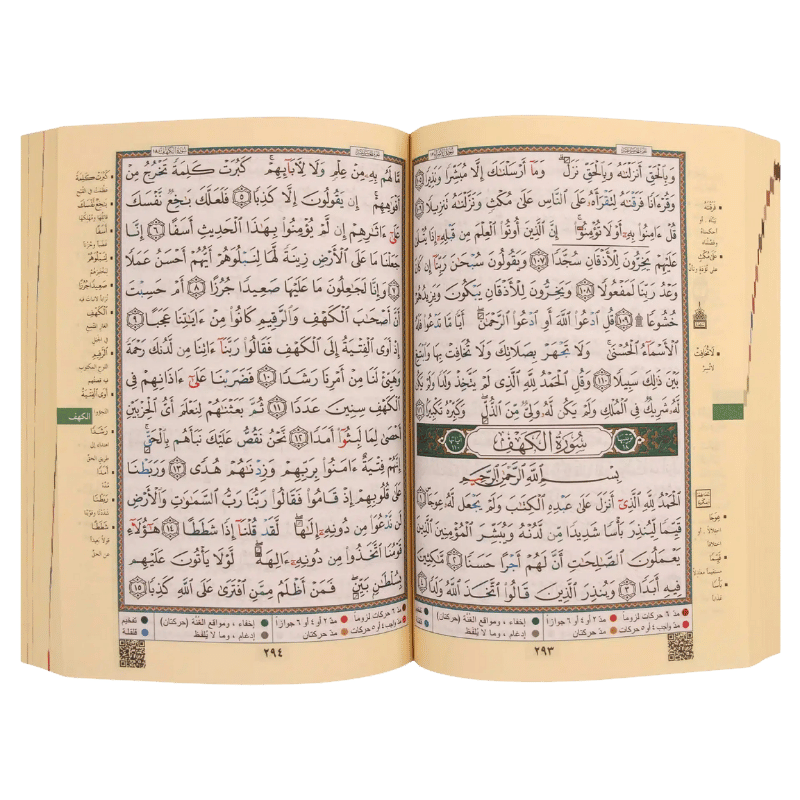 وَبِالْحَقِّ أَنزَلْنَٰهُ وَبِالْحَقِّ نَزَلَ ۗ وَمَا أَرْسَلْنَٰكَ إِلَّا مُبَشِّرًا وَنَذِيرًا ١٠٥
وَقُرْءَانًا فَرَقْنَٰهُ لِتَقْرَأَهُۥ عَلَى النَّاسِ عَلَىٰ مُكْثٍ وَنَزَّلْنَٰهُ تَنزِيلًا
قُلْ ءَامِنُوا بِهِۦ أَوْ لَا تُؤْمِنُوا ۚ إِنَّ الَّذِينَ أُوتُوا الْعِلْمَ مِن قَبْلِهِۦ إِذَا
عَلَيْهِمْ يَخِرُّونَ لِلْأَذْقَانِ سُجَّدًا ١٠٧ وَيَقُولُونَ سُبْحَٰنَ رَبِّنَا إِن كَانَ
وَعْدُ رَبِّنَا لَمَفْعُولًا ١٠٨ وَيَخِرُّونَ لِلْأَذْقَانِ يَبْكُونَ وَيَزِيدُهُمْ
خُشُوعًا ١٠٩ قُلِ ادْعُوا اللَّهَ أَوِ ادْعُوا الرَّحْمَٰنَ ۖ أَيًّا مَّا تَدْعُوا فَلَهُ
الْأَسْمَاءُ الْحُسْنَىٰ ۚ وَلَا تَجْهَرْ بِصَلَاتِكَ وَلَا تُخَافِتْ بِهَا وَابْتَغِ
بَيْنَ ذَٰلِكَ سَبِيلًا ١١٠ وَقُلِ الْحَمْدُ لِلَّهِ الَّذِي لَمْ يَتَّخِذْ وَلَدًا وَلَمْ يَكُن
لَّهُۥ شَرِيكٌ فِي الْمُلْكِ وَلَمْ يَكُن لَّهُۥ وَلِيٌّ مِّنَ الذُّلِّ ۖ وَكَبِّرْهُ تَكْبِيرًا
سُورَةُ الْكَهْفِ
بِسْمِ اللَّهِ الرَّحْمَٰنِ الرَّحِيمِ
الْحَمْدُ لِلَّهِ الَّذِي أَنزَلَ عَلَىٰ عَبْدِهِ الْكِتَٰبَ وَلَمْ يَجْعَل لَّهُۥ عِوَجًا ١
قَيِّمًا لِّيُنذِرَ بَأْسًا شَدِيدًا مِّن لَّدُنْهُ وَيُبَشِّرَ الْمُؤْمِنِينَ الَّذِينَ
يَعْمَلُونَ الصَّٰلِحَٰتِ أَنَّ لَهُمْ أَجْرًا حَسَنًا ٢ مَّٰكِثِينَ
فِيهِ أَبَدًا ٣ وَيُنذِرَ الَّذِينَ قَالُوا اتَّخَذَ اللَّهُ وَلَدًا ٤
مدّ ٦ حركات لزوماً مدّ ٢ أو ٤ أو ٦ جوازاً إخفاء ، ومواقع الغُنَّة (حركتان)
مدّ واجب ٤ أو ٥ حركات مدّ حركتان إدغام ، وما لا يُلفَظ
٢٩٣
فَرَقْنَٰهُ
عَلَىٰ مُكْثٍ
لَا تُخَافِتْ
عِوَجًا
قَيِّمًا
بَأْسًا
عذاباً
مَّا لَهُم بِهِۦ مِنْ عِلْمٍ وَلَا لِآبَائِهِمْ ۚ كَبُرَتْ كَلِمَةً تَخْرُجُ مِنْ
أَفْوَٰهِهِمْ ۚ إِن يَقُولُونَ إِلَّا كَذِبًا ٥ فَلَعَلَّكَ بَٰخِعٌ نَّفْسَكَ
عَلَىٰ ءَاثَٰرِهِمْ إِن لَّمْ يُؤْمِنُوا بِهَٰذَا الْحَدِيثِ أَسَفًا ٦ إِنَّا
جَعَلْنَا مَا عَلَى الْأَرْضِ زِينَةً لَّهَا لِنَبْلُوَهُمْ أَيُّهُمْ أَحْسَنُ عَمَلًا
٧ وَإِنَّا لَجَٰعِلُونَ مَا عَلَيْهَا صَعِيدًا جُرُزًا ٨ أَمْ حَسِبْتَ
أَنَّ أَصْحَٰبَ الْكَهْفِ وَالرَّقِيمِ كَانُوا مِنْ ءَايَٰتِنَا عَجَبًا ٩
إِذْ أَوَى الْفِتْيَةُ إِلَى الْكَهْفِ فَقَالُوا رَبَّنَا ءَاتِنَا مِن لَّدُنكَ رَحْمَةً
وَهَيِّئْ لَنَا مِنْ أَمْرِنَا رَشَدًا ١٠ فَضَرَبْنَا عَلَىٰ ءَاذَانِهِمْ فِي
الْكَهْفِ سِنِينَ عَدَدًا ١١ ثُمَّ بَعَثْنَٰهُمْ لِنَعْلَمَ أَيُّ الْحِزْبَيْنِ
أَحْصَىٰ لِمَا لَبِثُوا أَمَدًا ١٢ نَّحْنُ نَقُصُّ عَلَيْكَ نَبَأَهُم بِالْحَقِّ ۚ
إِنَّهُمْ فِتْيَةٌ ءَامَنُوا بِرَبِّهِمْ وَزِدْنَٰهُمْ هُدًى ١٣ وَرَبَطْنَا
عَلَىٰ قُلُوبِهِمْ إِذْ قَامُوا فَقَالُوا رَبُّنَا رَبُّ السَّمَٰوَٰتِ وَالْأَرْضِ
لَن نَّدْعُوَا مِن دُونِهِۦ إِلَٰهًا ۖ لَّقَدْ قُلْنَا إِذًا شَطَطًا ١٤ هَٰؤُلَاءِ
قَوْمُنَا اتَّخَذُوا مِن دُونِهِۦ ءَالِهَةً ۖ لَّوْلَا يَأْتُونَ عَلَيْهِم
بِسُلْطَٰنٍ بَيِّنٍ ۖ فَمَنْ أَظْلَمُ مِمَّنِ افْتَرَىٰ عَلَى اللَّهِ كَذِبًا ١٥
مدّ ٦ حركات لزوماً مدّ ٢ أو ٤ أو ٦ جوازاً إخفاء ، ومواقع الغُنَّة (حركتان) تفخيم
مدّ واجب ٤ أو ٥ حركات مدّ حركتان إدغام ، وما لا يُلفَظ قلقلة
٢٩٤
كَبُرَتْ كَلِمَةً
بَٰخِعٌ نَّفْسَكَ
أَسَفًا
صَعِيدًا جُرُزًا
الْكَهْفِ
الرَّقِيمِ
أَوَى الْفِتْيَةُ
الكهف
رَشَدًا
أَمَدًا
رَبَطْنَا
شَطَطًا